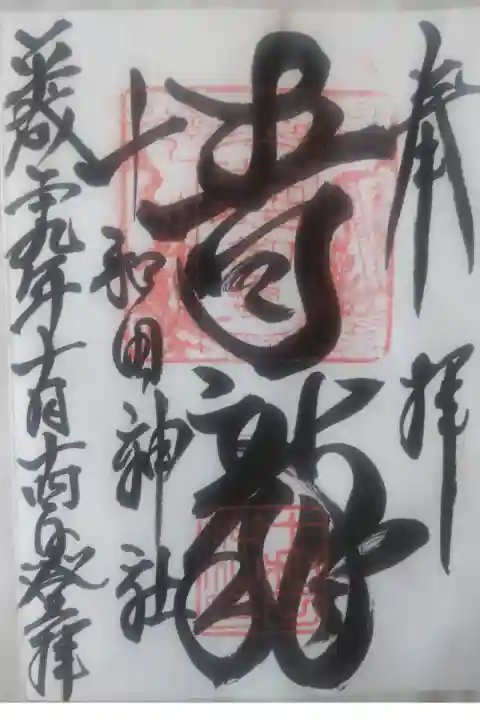 奉拝
青龍
十和田神社
平成二九年十月廿四日登拝